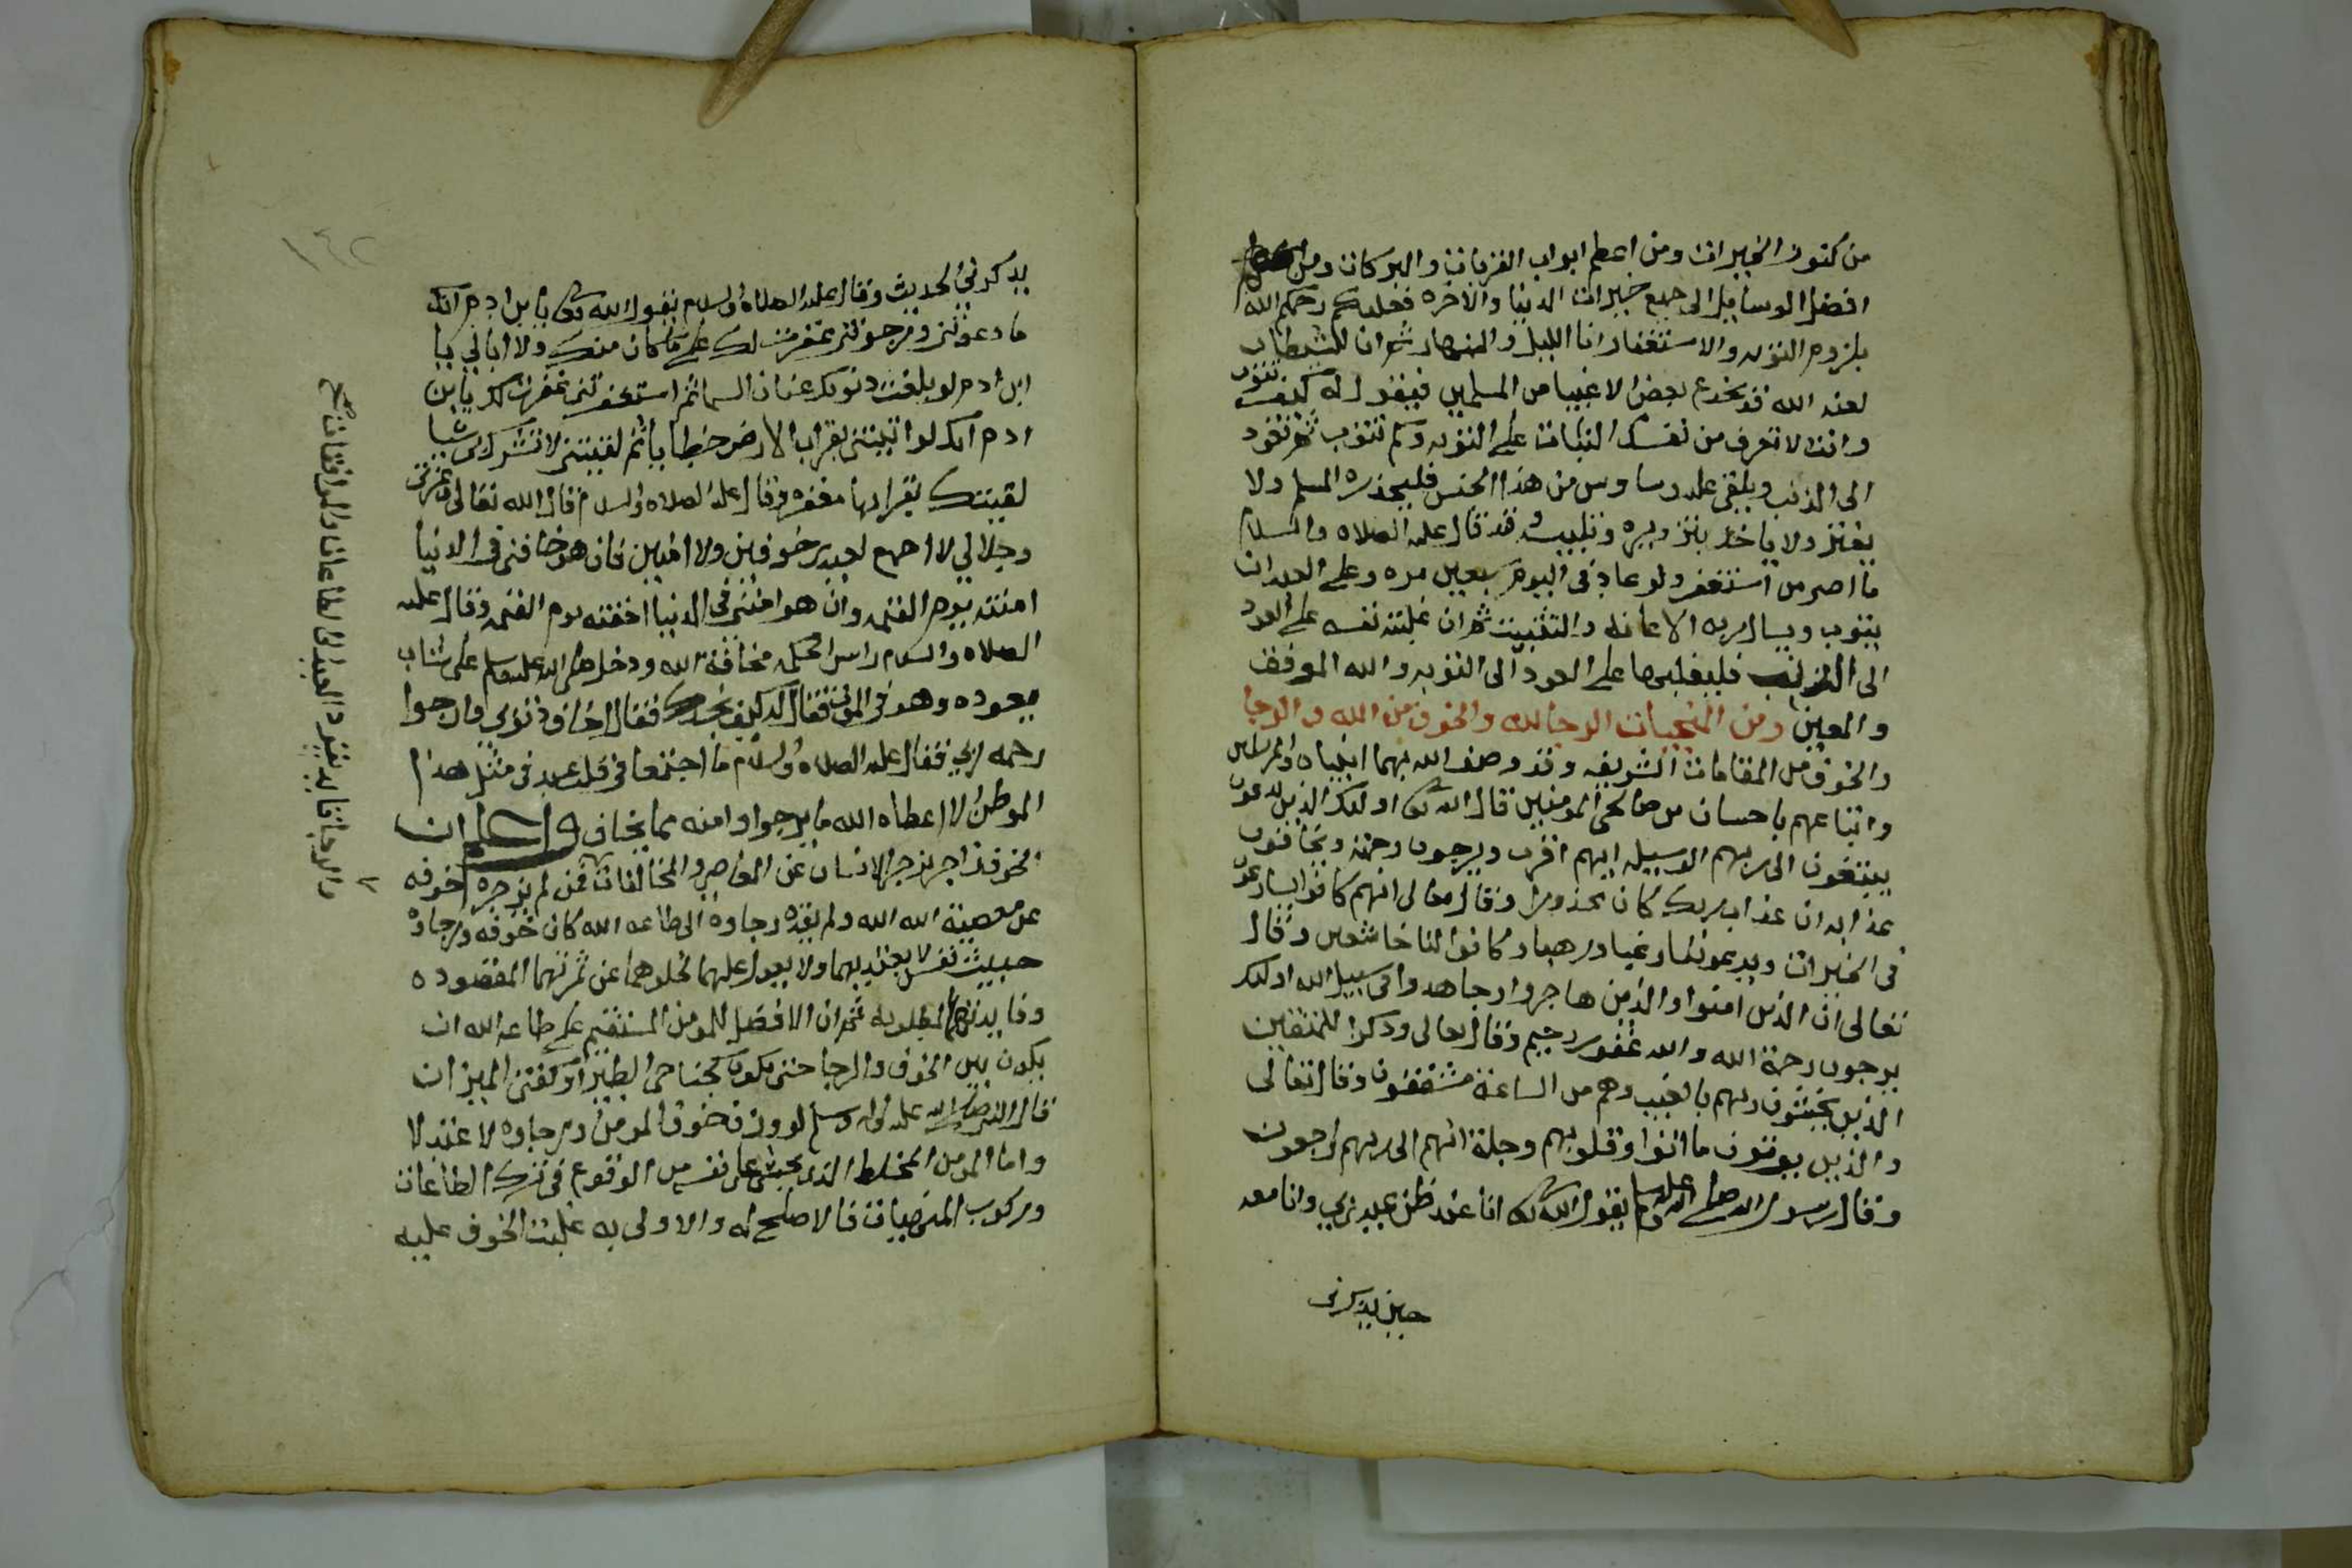 من كنوز الخيرات ومن اعظم ابواب القربات والبركات ومن
افضل الوسايل الى جميع خيرات الدنيا والاخره فعليكم رحمكم الله
بلزوم التوبه والاستغفار انا الليل والنهار ثم ان للشيطان
لعنه الله قد يخدع بعض الاغبيا من المسلمين فيقول له كيف تتوب
وانت لا تعرف من نفسك الثبات على التوبه وكم تتوب ثم تعود
الى الذنب ويلقي عليه وساوس من هذا الجنس فليحذره المسلم ولا
يغتر ولا ياخذ بتزويره وتلبيسه وقد قال عليه الصلاه والسلام
ما اصر من استغفر ولو عاد في اليوم سبعين مره وعلى العبد ان
يتوب ويسال ربه الاعانه والتثبيت ثم ان غلبته نفسه على العود
الى الذنب فليغلبها على العود الى التوبه والله الموفق
والمعين ومن المنجيات الرجا لله والخوف من الله والرجا
والخوف من المقامات الشريفه وقد وصف الله بهما انبياه والمرسلين
واتباعهم باحسان من صالحي المومنين قال الله تعالى اولئك الذين يدعون
يبتغون الى ربهم الوسيله ايهم اقرب ويرجون رحمته ويخافون
عذابه ان عذاب ربك كان محذورا وقال تعالى انهم كانوا يسارعون
في الخيرات ويدعوننا رغبا ورهبا وكانوا لنا خاشعين وقال
تعالى ان الذين امنوا والذين هاجروا وجاهدوا في سبيل الله اولئك
يرجون رحمة الله والله غفور رحيم وقال تعالى وذكرا للمتقين
الذين يخشون ربهم بالغيب وهم من الساعة مشفقون وقال تعالى
والذين يوتون ما اتوا وقلوبهم وجلة انهم الى ربهم راجعون
وقال رسول الله صلى الله عليه وسلم يقول الله تعالى انا عند ظن عبدي بي وانا معه
حين يذكرني
١٤٢
يذكرني الحديث وقال عليه الصلاة والسلام يقول الله تعالى يا بن ادم انك
ما دعوتني ورجوتني غفرت لك على ما كان منك ولا ابالي يا
ابن ادم لو بلغت ذنوبك عنان السما ثم استغفرتني غفرت لك يا بن
ادم انك لو اتيتني بقراب الارض خطايا ثم لقيتني لا تشرك بي شيا
لقيتك بقرابها مغفره وقال عليه الصلاه والسلام قال الله تعالى وعزتي
وجلالي لا اجمع لعبدي خوفين ولا امنين فان هو خافني في الدنيا
امنته يوم القيمه وان هو امنني في الدنيا اخفته يوم القيمه وقال عليه
الصلاه والسلام راس الحكمه مخافة الله ودخل صلى الله عليه وسلم على شاب
يعوده وهو في الموت فقال له كيف تجدك فقال اخاف ذنوبي وارجوا
رحمه ربي فقال عليه الصلاه والسلام ما اجتمعا في قلب عبد في مثل هذا
الموطن الا اعطاه الله ما يرجوا وامنه مما يخاف واعلم ان
الخوف زاجر يزجر الانسان عن المعاصي والمخالفات فمن لم يزجره خوفه
عن معصية الله الله ولم يقده رجاوه الى طاعه الله كان خوفه ورجاوه
حديث نفس لا يعتد بهما ولا يعول عليهما لخلوهما عن ثمرتهما المقصوده
وفايدتهما المطلوبه ثم ان الافضل للمومن المستقيم على طاعه الله ان
يكون بين الخوف والرجا حتى يكون كجناحي الطير او كفتي الميزان
قال النبي صلى الله عليه واله وسلم لو وزن خوف المومن ورجاوه لاعتدلا
واما المومن المخلط الذي يخشى على نفسه من الوقوع في ترك الطاعات
وركوب المنهيات فالاصلح له والاولى به غلبت الخوف عليه
والرجا قايد يقود العبد الى الطاعات والموافقات صح